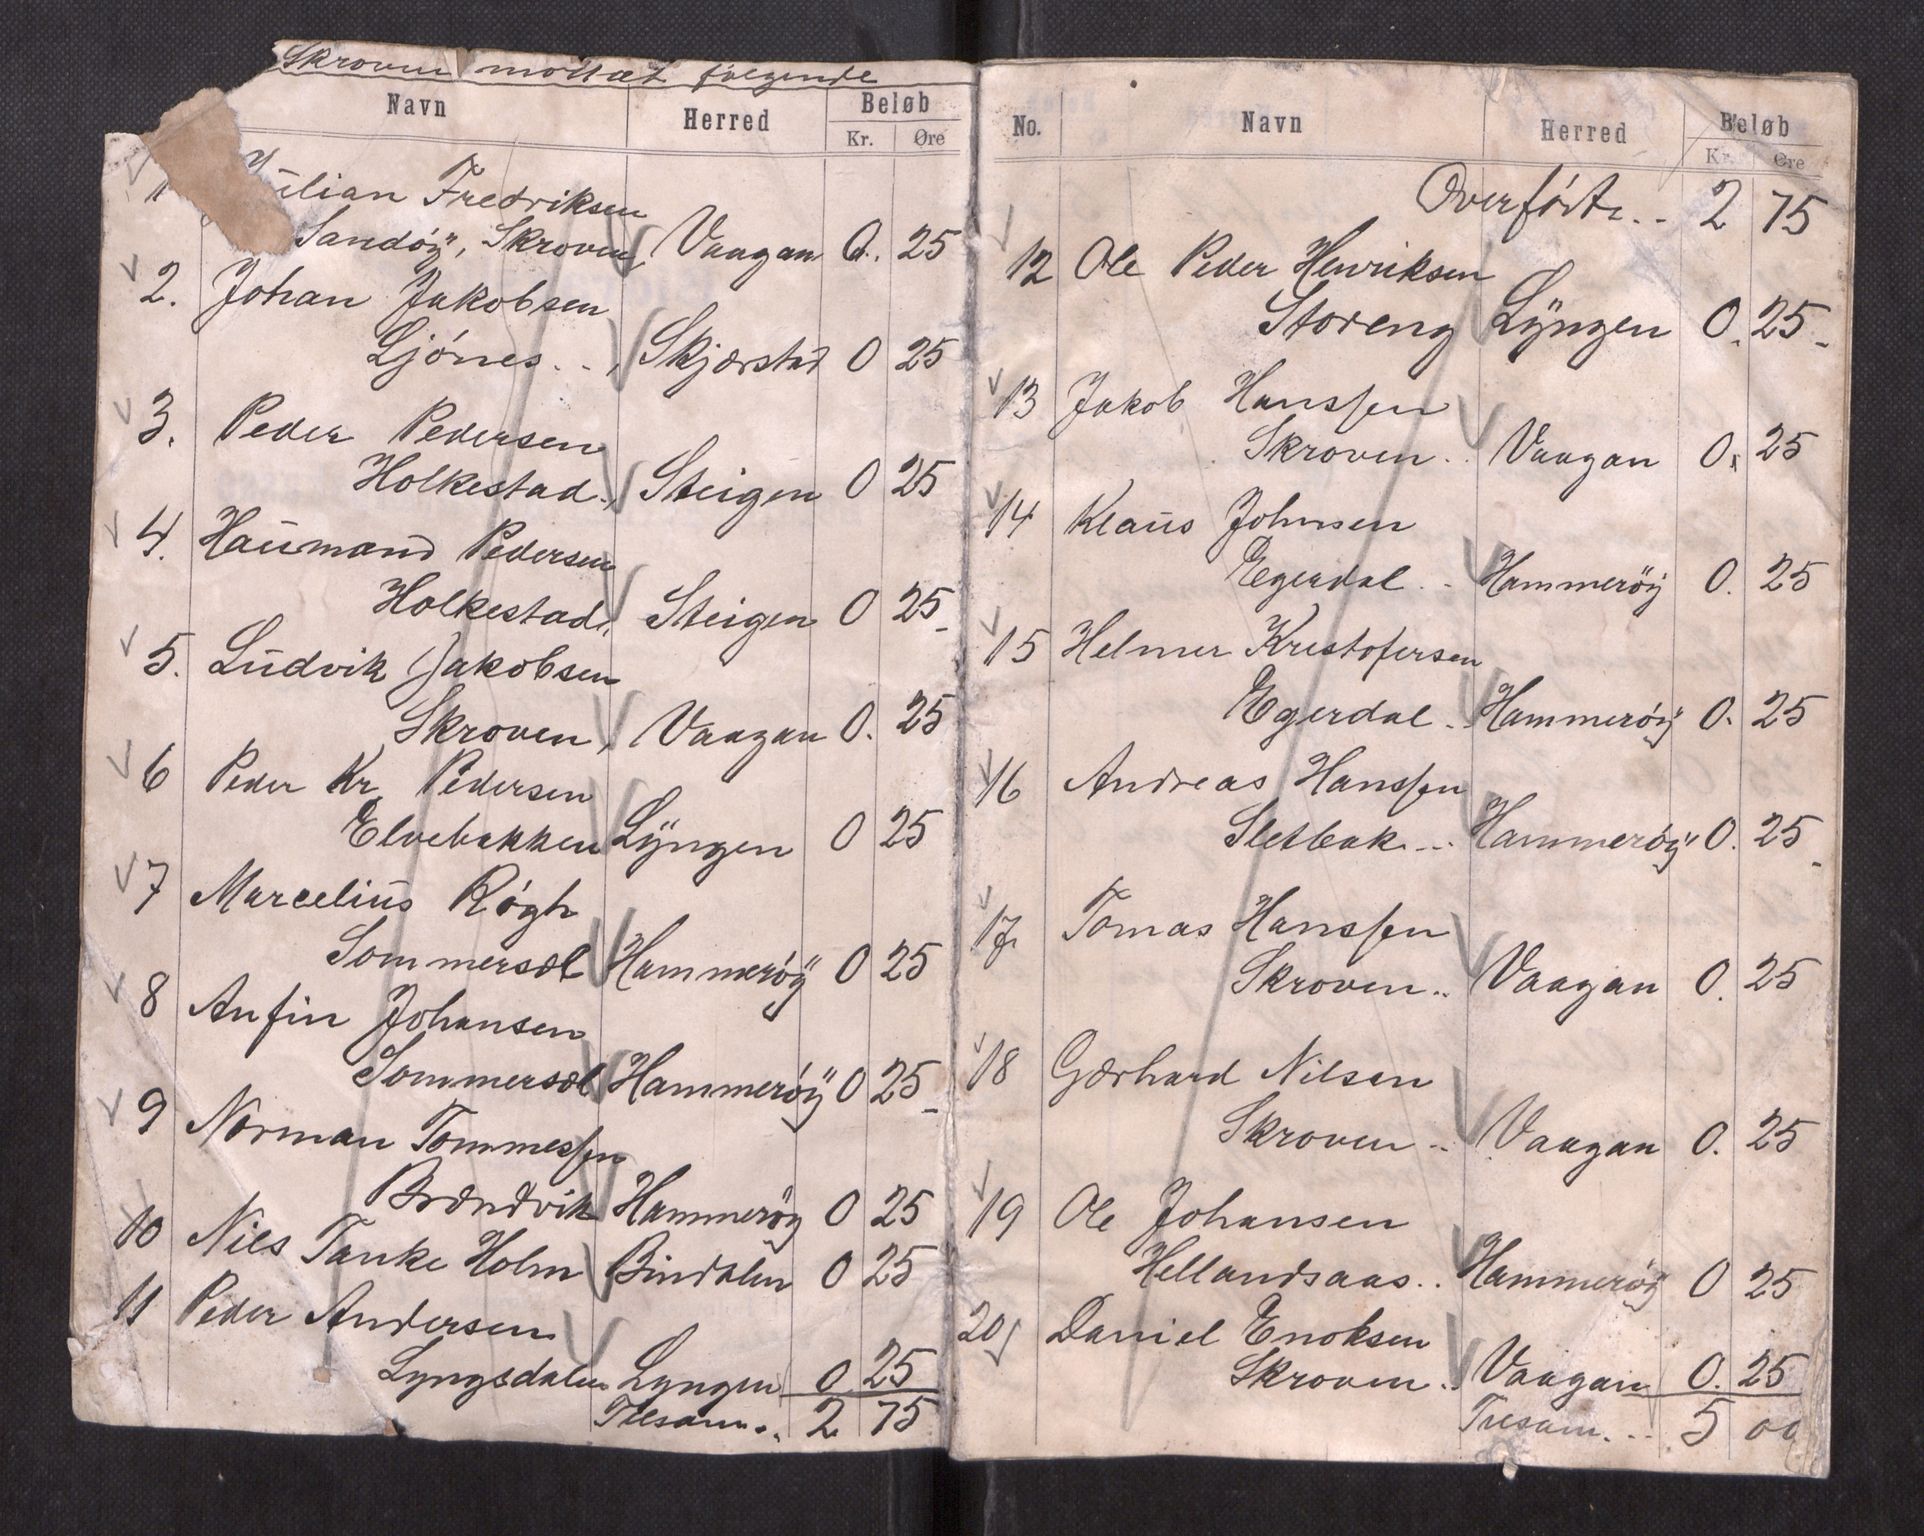 Skroven mottat følgende
Navn Herred Beløb
Kr. Øre
1 Julian Fredriksen
Sandöy, Skroven, Vaagan 0. 25
2. Johan Jakobsen
Ljónes . . , Skjærstad 0 25
3. Peder Pedersen
Holkestad., Steigen 0 25
4. Haumand Pedersen
Holkestad, Steigen 0 25
5. Ludvik Jakobsen
Skroven, Vaagan 0. 25
6 Peder Kr. Pedersen
Elvebakken Lyngen 0 25
7 Marcelius Røgh
Sommersæl Hammerøy 0 25
8 Anfin Johansen
Sommersæl Hammerøy 0 25
9 Norman Tommessen
Brændvik Hammerøy 0 25
10 Nils Tanke Holm Bindalen 0 25
11 Peder Andersen
Lyngsdalen Lyngen 0 25
Tilsam. . 2 75
No. Navn Herred Beløb
Kr. Øre
Overførte. . 2 75
12 Ole Peder Henriksen
Storeng Lyngen 0. 25
13 Jakob Hanssen
Skroven . . Vaagan 0. 25
14 Klaus Johnsen
Egerdal . . Hammerøy 0. 25
15 Helmer Kristofersen
Egerdal . Hammerøy 0. 25
16 Andreas Hanssen
Sletbak . . . Hammerøy 0. 25
17. Tomas Hanssen
Skroven . . Vaagan 0. 25
18 Gærhard Nilsen
Skroven . . Vaagan 0. 25
19 Ole Johansen
Hellandsaas . . Hammerøy 0 25
20 Daniel Enoksen
Skroven . . Vaagan 0. 25
Tilsam. . . 5 00